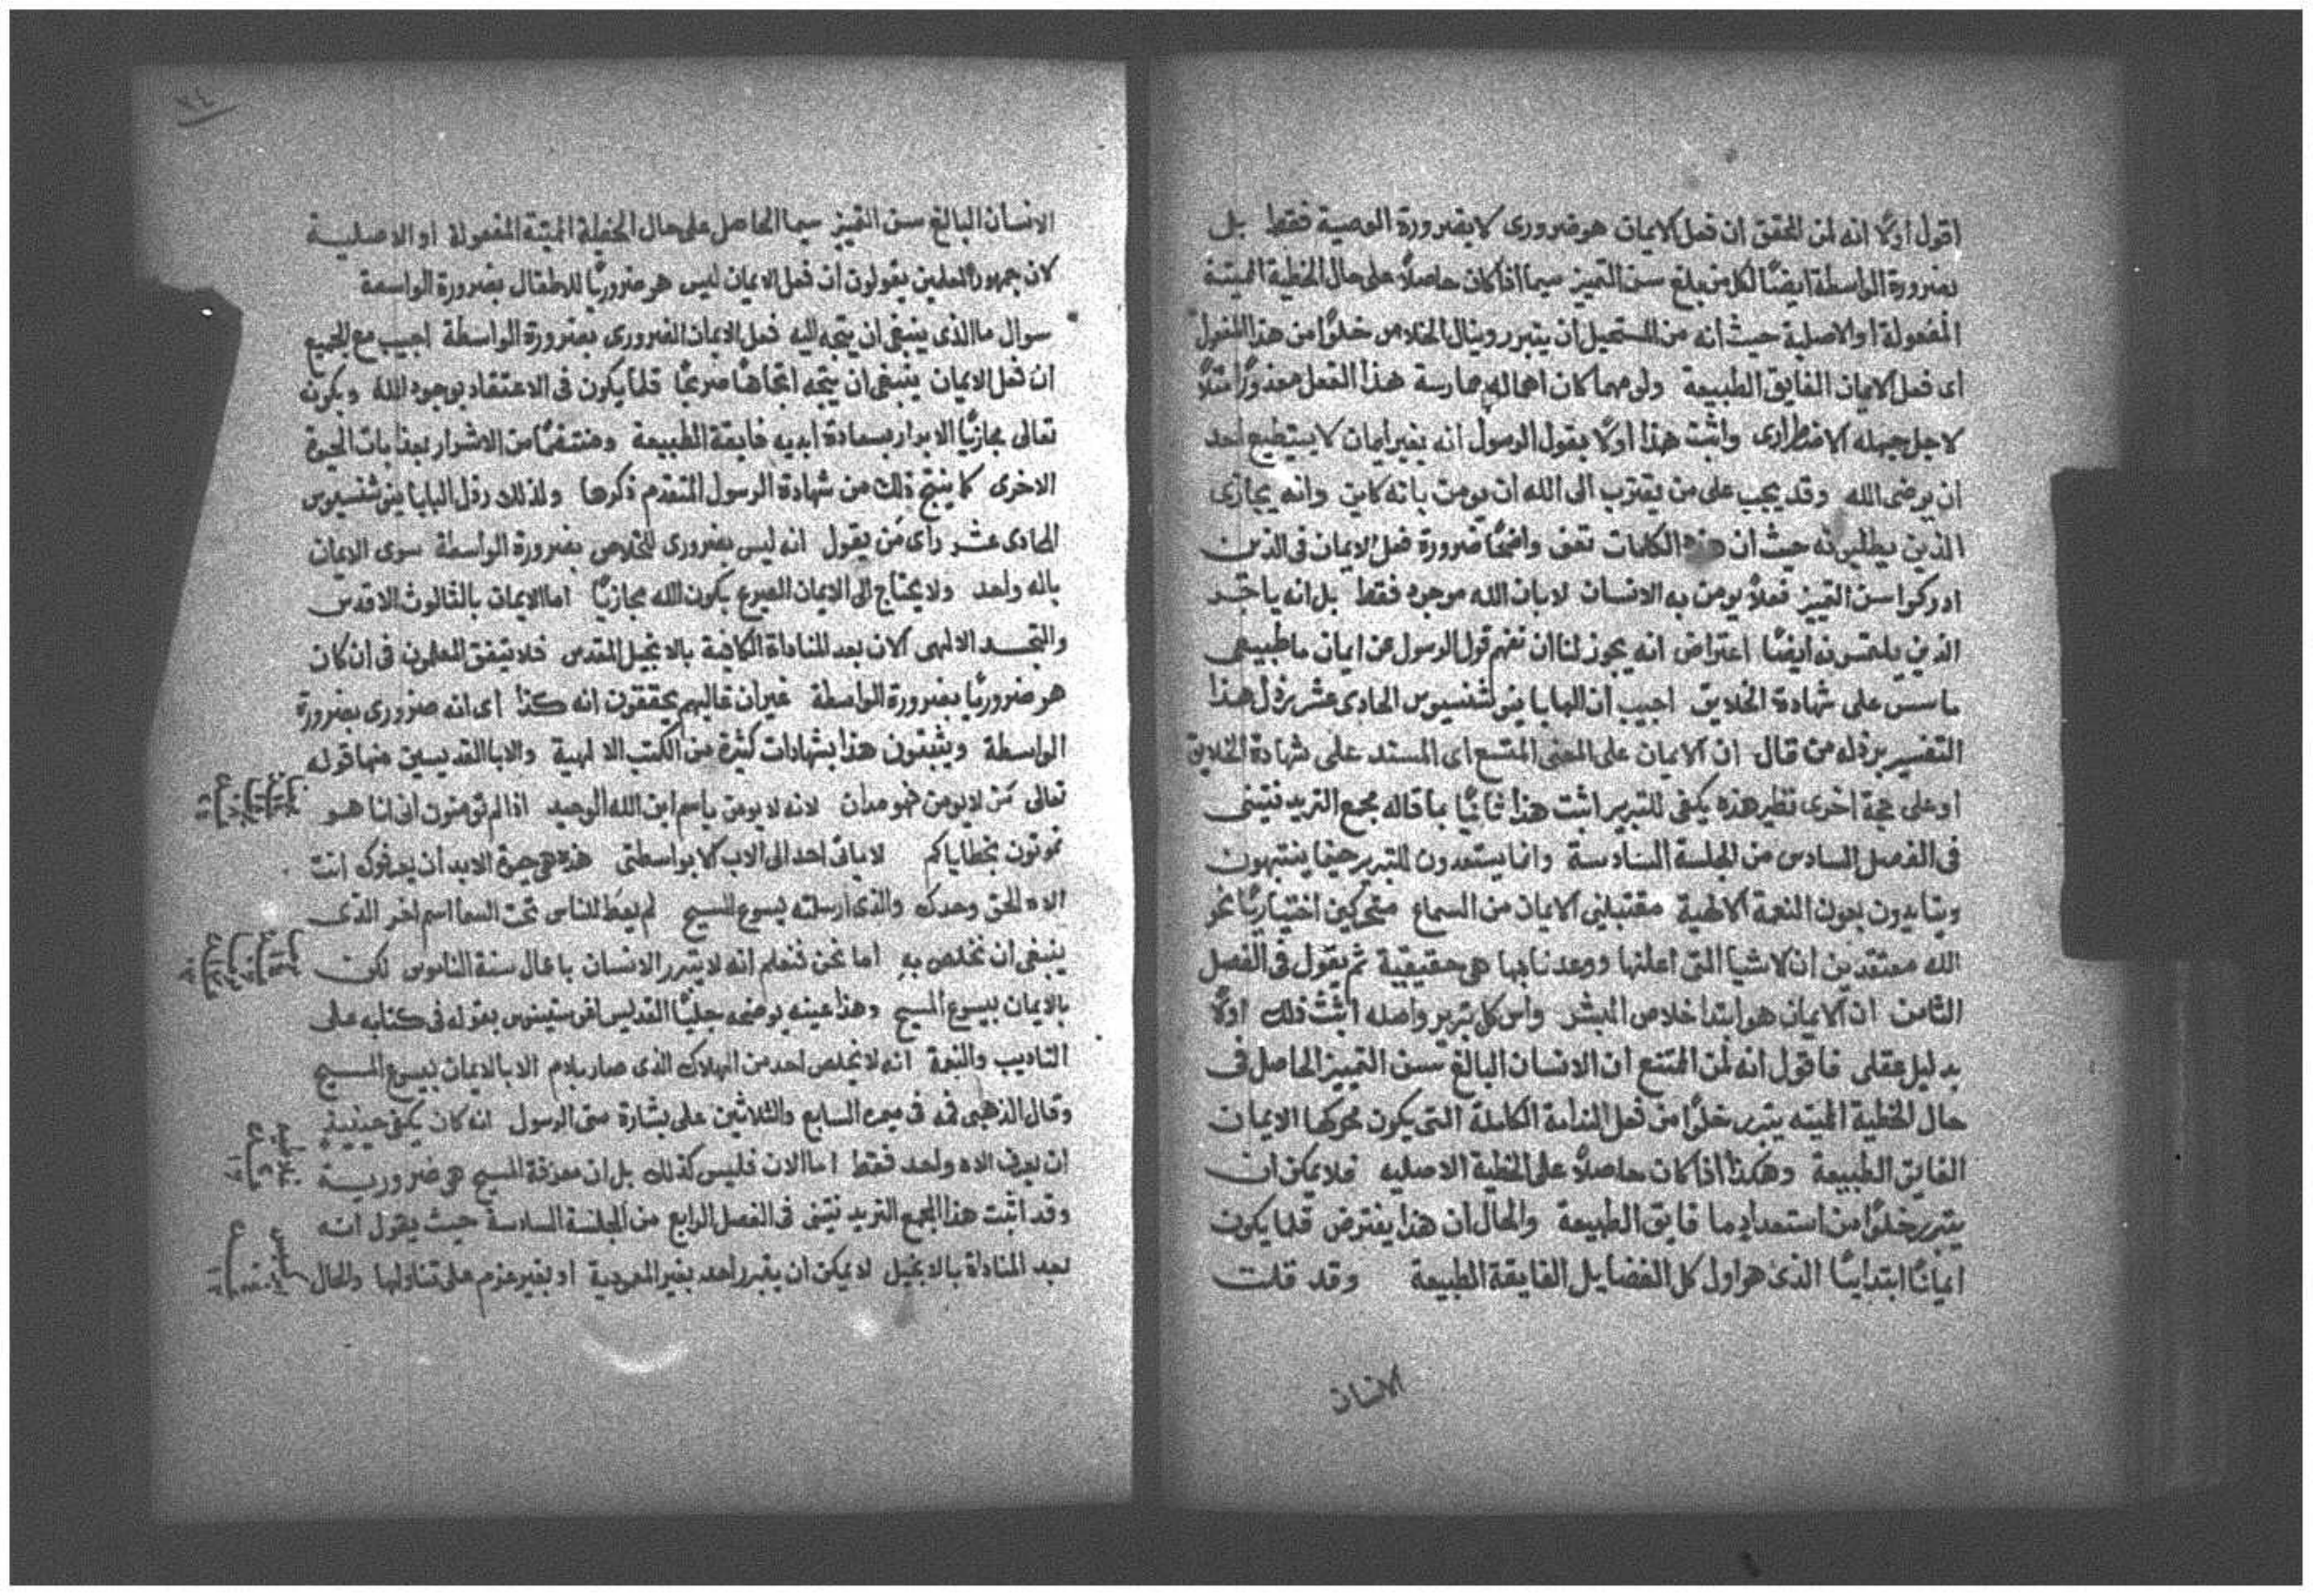 اقول اولًا انه لمن المحقق ان فعل الايمان هو ضرورى لا بضرورة الوصية فقط بل
بضرورة الواسطة ايضًا لكل من بلغ سن التمييز سيما اذا كان حاصلًا على حال الخطية المميتة
المفعولة او الاصلية حيث انه من المستحيل ان يتبرر وينال الخلاص خلوًا من هذا المفعول
اى فعل الايمان الفايق الطبيعة ولو مهما كان اهماله ممارسة هذا الفعل معذورًا مثلًا
لاجل جهله الاضطرارى واثبت هذا اولًا بقول الرسول انه بغير ايمان لا يستطيع احد
ان يرضى الله وقد يجب على من يقترب الى الله ان يومن بانه كاين وانه يجازى
الذين يطلبونه حيث ان هذه الكلمات تعنى واضحًا ضرورة فعل الايمان فى الذين
ادركوا سن التمييز فعلًا يومن به الانسان لا بان الله موجود فقط بل انه ياجر
الذين يلتمسونه ايضًا اعتراض انه يجوز لنا ان نفهم قول الرسول عن ايمان ما طبيعى
ماسس على شهادة الخلايق اجيب ان البابا اينوشنسيوس الحادى عشر يرذل هذا
التفسير برذله من قال ان الايمان على المعنى المتسع اى المستند على شهادة الخلايق
او على حجة اخرى نظير هذه يكفى للتبرير اثبت هذا ثانيًا بما قاله مجمع التريدنتينى
فى الفصل السادس من الجلسة السادسة وانما يستعدون للتبرير حينما ينتبهون
ويتايدون بعون النعمة الالهية مقتبلين الايمان من السماع متحركين اختياريًا نحو
الله معتقدين ان الاشيا التى اعلنها ووعدنا بها هى حقيقية ثم يقول فى الفصل
الثامن ان الايمان هو ابتدا خلاص البشر واس كل تبرير واصله اثبت ذلك اولًا
بدليل عقلى فاقول انه لمن الممتنع ان الانسان البالغ سن التمييز الحاصل فى
حال الخطية المميته يتبرر خلوًا من فعل الندامة الكاملة التى يكون محركها الايمان
الفايق الطبيعة وهكذا اذا كان حاصلًا على الخطية الاصليه فلا يمكن ان
يتبرر خلوًا من استعداد ما فايق الطبيعة والحال ان هذا يفترض قلما يكون
ايمانًا ابتداييًا الذى هو اول كل الفضايل الفايقة الطبيعة وقد قلت
الانسان
٧٤
الانسان البالغ سن التمييز سيما الحاصل على حال الخطية المميتة المفعولة او الاصلية
لان جمهور المعلمين يقولون ان فعل الايمان ليس هو ضروريًا للاطفال بضرورة الواسطة
سوال ما الذى ينبغى ان يتجه اليه فعل الايمان الضرورى بضرورة الواسطة اجيب مع الجميع
ان فعل الايمان ينبغى ان يتجه اتجاهًا صريحًا قلما يكون فى الاعتقاد بوجود الله وبكونه
تعالى مجازيًا الابرار بسعادة ابديه فايقة الطبيعة ومنتقمًا من الاشرار بعذابات الحيوة
الاخرى كما ينتج ذلك من شهادة الرسول المتقدم ذكرها ولذلك رذل البابا اينوشنسيوس
الحادى عشر راى من يقول انه ليس بضرورى للخلاص بضرورة الواسطة سوى الايمان
باله واحد ولا يحتاج الى الايمان الصريح بكون الله مجازيًا اما الايمان بالثالوث الاقدس
والتجسد الالهى الان بعد المناداة الكافية بالانجيل المقدس فلا يتفق المعلمون فى ان كان
هو ضروريًا بضرورة الواسطة غير ان غالبهم يحققون انه كذا اى انه ضرورى بضرورة
الواسطة ويثبتون هذا بشهادات كثيرة من الكتب الالهية والابا القديسين منها قوله
تعالى من لا يومن فهو مدان لانه لا يومن باسم ابن الله الوحيد اذا لم تومنون انى انا هو
تموتون بخطاياكم لا ياتى احد الى الاب الا بواسطتى هذه هى حيوة الابد ان يعرفوك انت
الاه الحق وحدك والذى ارسلته يسوع المسيح لم يعط للناس تحت السما اسم اخر الذى
ينبغى ان نخلص به اما نحن فنعلم انه لا يتبرر الانسان باعمال سنة الناموس لكن
بالايمان بيسوع المسيح وهذا عينه يوضحه جليًا القديس اغوستينوس بقوله فى كتابه على
التاديب والنعمة انه لا يخلص احد من الهلاك الذى صار بادم الا بالايمان بيسوع المسيح
وقال الذهبى فمه فى ميمره السابع والثلاثين على بشارة متى الرسول انه كان يكفى حينيذٍ
ان يعرف الاه واحد فقط اما الان فليس كذلك بل ان معرفة المسيح هى ضرورية
وقد اثبت هذا المجمع التريدنتينى فى الفصل الرابع من الجلسة السادسة حيث يقول انه
بعد المناداة بالانجيل لا يمكن ان يتبرر احد بغير المعمودية او بغير عزم على تناولها والحال